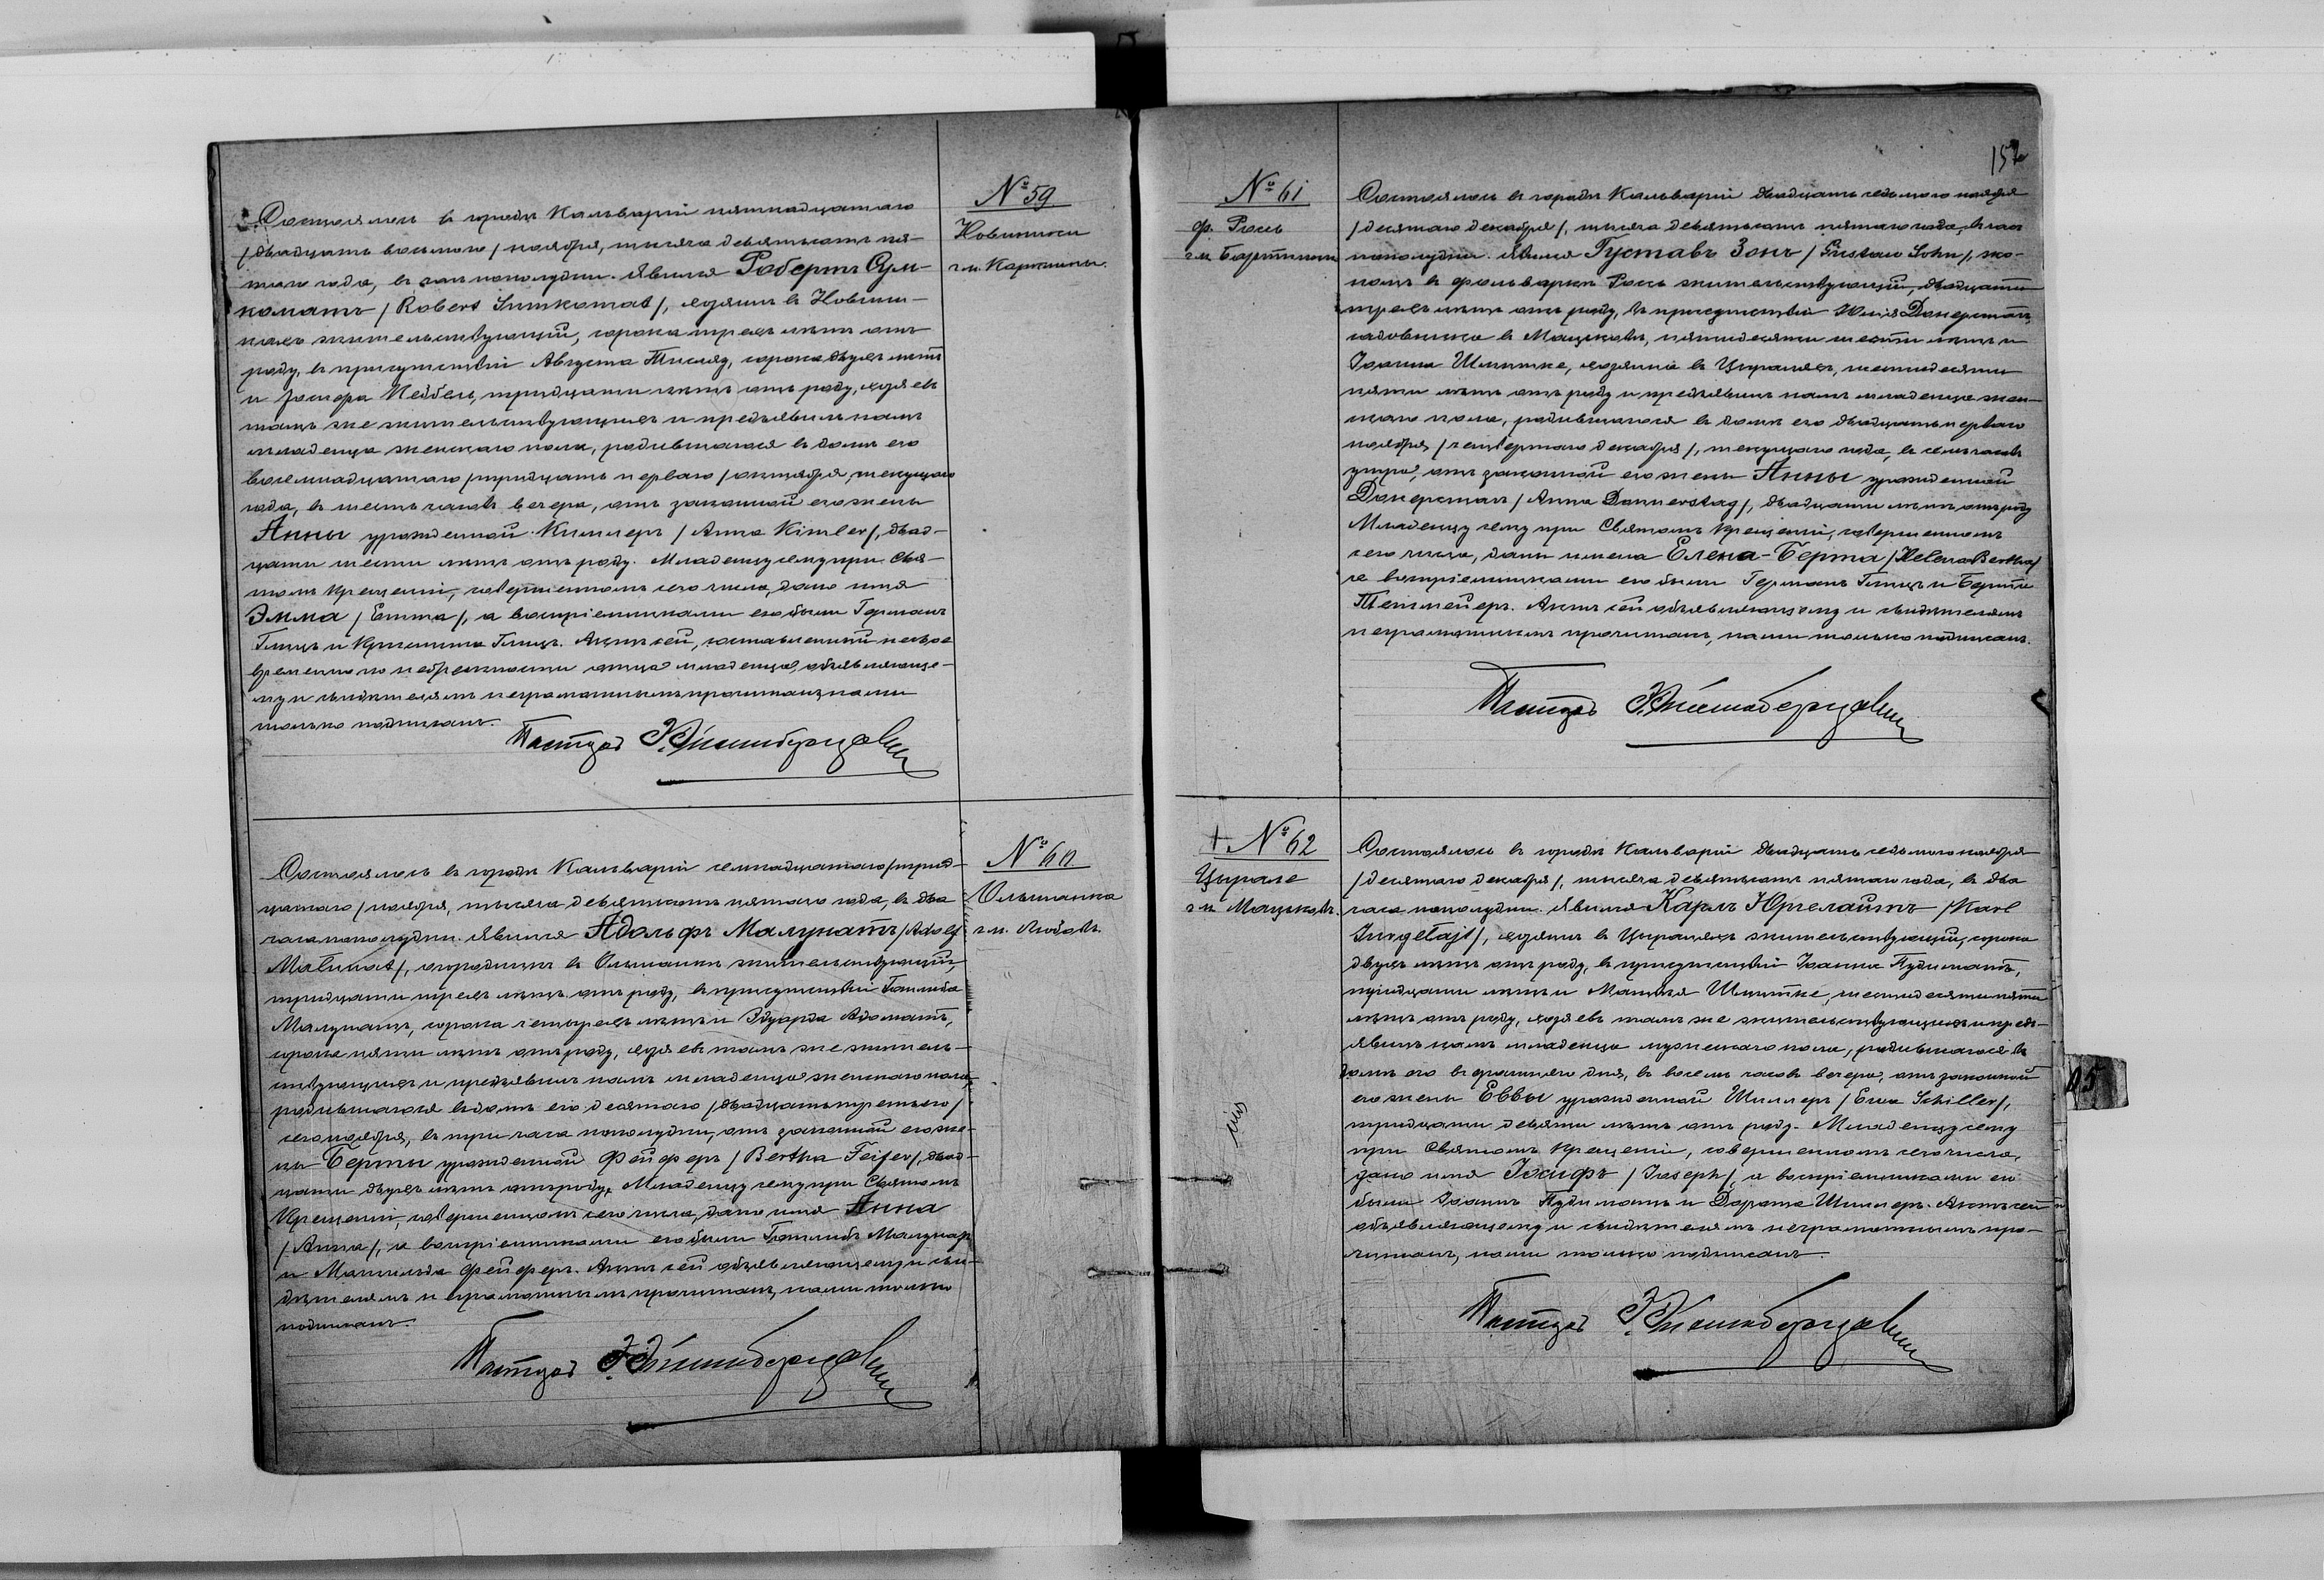 № 59
Новинники
г.м. Каролины.
Состоялось въ городѣ Кальваріи пятнадцатаго
/двадцать восьмого/ ноября, тысяча девятьсотъ пя-
таго года, въ часъ пополудни. Явился Робертъ Сум-
коматъ /Robert Sumkomat/, хозяинъ въ Новинни-
кахъ жительствующій, сорока трехъ лѣтъ отъ
роду, въ присутствіи Августа Тисляу, сорока двухъ лѣтъ
и Нейбель, тридцати лѣтъ отъ роду, хозяевъ
тамъ же жительствующихъ и предъявилъ намъ
младенца женскаго пола, родившагося въ домѣ его
восемнадцатаго /тридцать перваго/ октября, текущаго
года, въ шесть часовъ вечера, отъ законной его жены
Анны урожденной Кимлеръ /Anna Kimler/, двад-
цати шести лѣтъ отъ роду. Младенцу сему при Свя-
томъ Крещеніи, совершенномъ сего числа, дано имя
Эмма /Emma/, а воспріемниками его были Германъ
Глицъ и Кристина Глицъ. Актъ сей, составленный несвое
временно по небрежности отца младенца, объявляюще-
му и свидѣтелямъ неграмотнымъ прочитанъ, нами
только подписанъ.
Пасторъ
№ 60
Ольшанка
г.м. Любовъ.
Состоялось въ городѣ Кальваріи семнадцатаго /трид-
цатаго/ ноября, тысяча девятьсотъ пятаго года, въ два
часа пополудни. Явился Адольфъ Малунатъ /Adolf
Malunat/, огородникъ въ Ольшанкѣ жительствующій,
тридцати трехъ лѣтъ отъ роду, въ присутствіи Готлиба
Малунатъ, сорока четырехъ лѣтъ и Эдуарда Адоматъ,
сорока пяти лѣтъ отъ роду, хозяевъ тамъ же житель-
ствующихъ и предъявилъ намъ младенца женскаго пола,
родившагося въ домѣ его десятаго /двадцать третьяго/
сего ноября, въ три часа пополудни, отъ законной его же-
ны Берты урожденной Фейферъ /Bertha Feifer/, двад-
цати двухъ лѣтъ отъ роду. Младенцу сему при Святомъ
Крещеніи, совершенномъ сего числа, дано имя Анна
/Anna/, а воспріемниками его были Готлибъ Малунатъ
и Матильда Фейферъ. Актъ сей объявляющему и сви-
дѣтелямъ неграмотнымъ прочитанъ, нами только
подписанъ.
Пасторъ
157
№ 61
ф. Рось
г.м. Бартники
Состоялось въ городѣ Кальваріи двадцать седьмого ноября
/десятаго декабря/, тысяча девятьсотъ пятаго года, въ часъ
пополудни. Явился Густавъ Зонъ /Gustaw Sohn/, эко-
номъ въ фольваркѣ Рось жительствующій, двадцати
трехъ лѣтъ отъ роду, въ присутствіи Юлія Донерштагъ,
садовника въ Мацьковѣ, пятидесяти шести лѣтъ и
Іоанна Шлихтке, хозяина въ Цыраляхъ, шестидесяти
пяти лѣтъ отъ роду и предъявилъ намъ младенца жен-
скаго пола, родившагося въ домѣ его двадцать перваго
ноября, /четвертаго декабря/, текущаго года, въ семь часовъ
утра, отъ законной его жены Анны урожденной
Донерстагъ /Anna Donnerstag/, двадцати лѣтъ отъ роду
Младенцу сему при Святомъ Крещеніи, совершенномъ
сего числа, даны имена Елена-Берта /Helena Bertha/
а воспріемниками его были Германъ Глицъ и Берта
Теймейеръ. Актъ сей объявляющему и свидѣтелямъ
неграмотнымъ прочитанъ, нами только подписанъ.
Пасторъ
+ № 62
Цырале
г.м. Мацьковъ.
Состоялось въ городѣ Кальваріи двадцать седьмого ноября
/десятаго декабря/, тысяча девятьсотъ пятаго года, въ два
часа пополудни. Явился Карлъ Юргелайтъ /Karl
Jurgelajt/, хозяинъ въ Цыраляхъ жительствующій, сорока
двухъ лѣтъ отъ роду, въ присутствіи Іоанна Пудиматъ,
тридцати лѣтъ и Матвѣя Шлихтке, шестидесяти пяти
лѣтъ отъ роду, хозяевъ тамъ же жительствующихъ и предъ-
явилъ намъ младенца мужескаго пола, родившагося въ
домѣ его вчерашняго дня, въ восемь часовъ вечера, отъ законной
его жены Еввы урожденной Шиллеръ /Ewa Schiller/,
тридцати девяти лѣтъ отъ роду. Младенцу сему
при Святомъ Крещеніи, совершенномъ сего числа,
дано имя Іосифъ /Joseph/, а воспріемниками его
были Іоаннъ Пудиматъ и Дорота Шиллеръ. Актъ сей
объявляющему и свидѣтелямъ неграмотнымъ про-
читанъ, нами только подписанъ.
Пасторъ